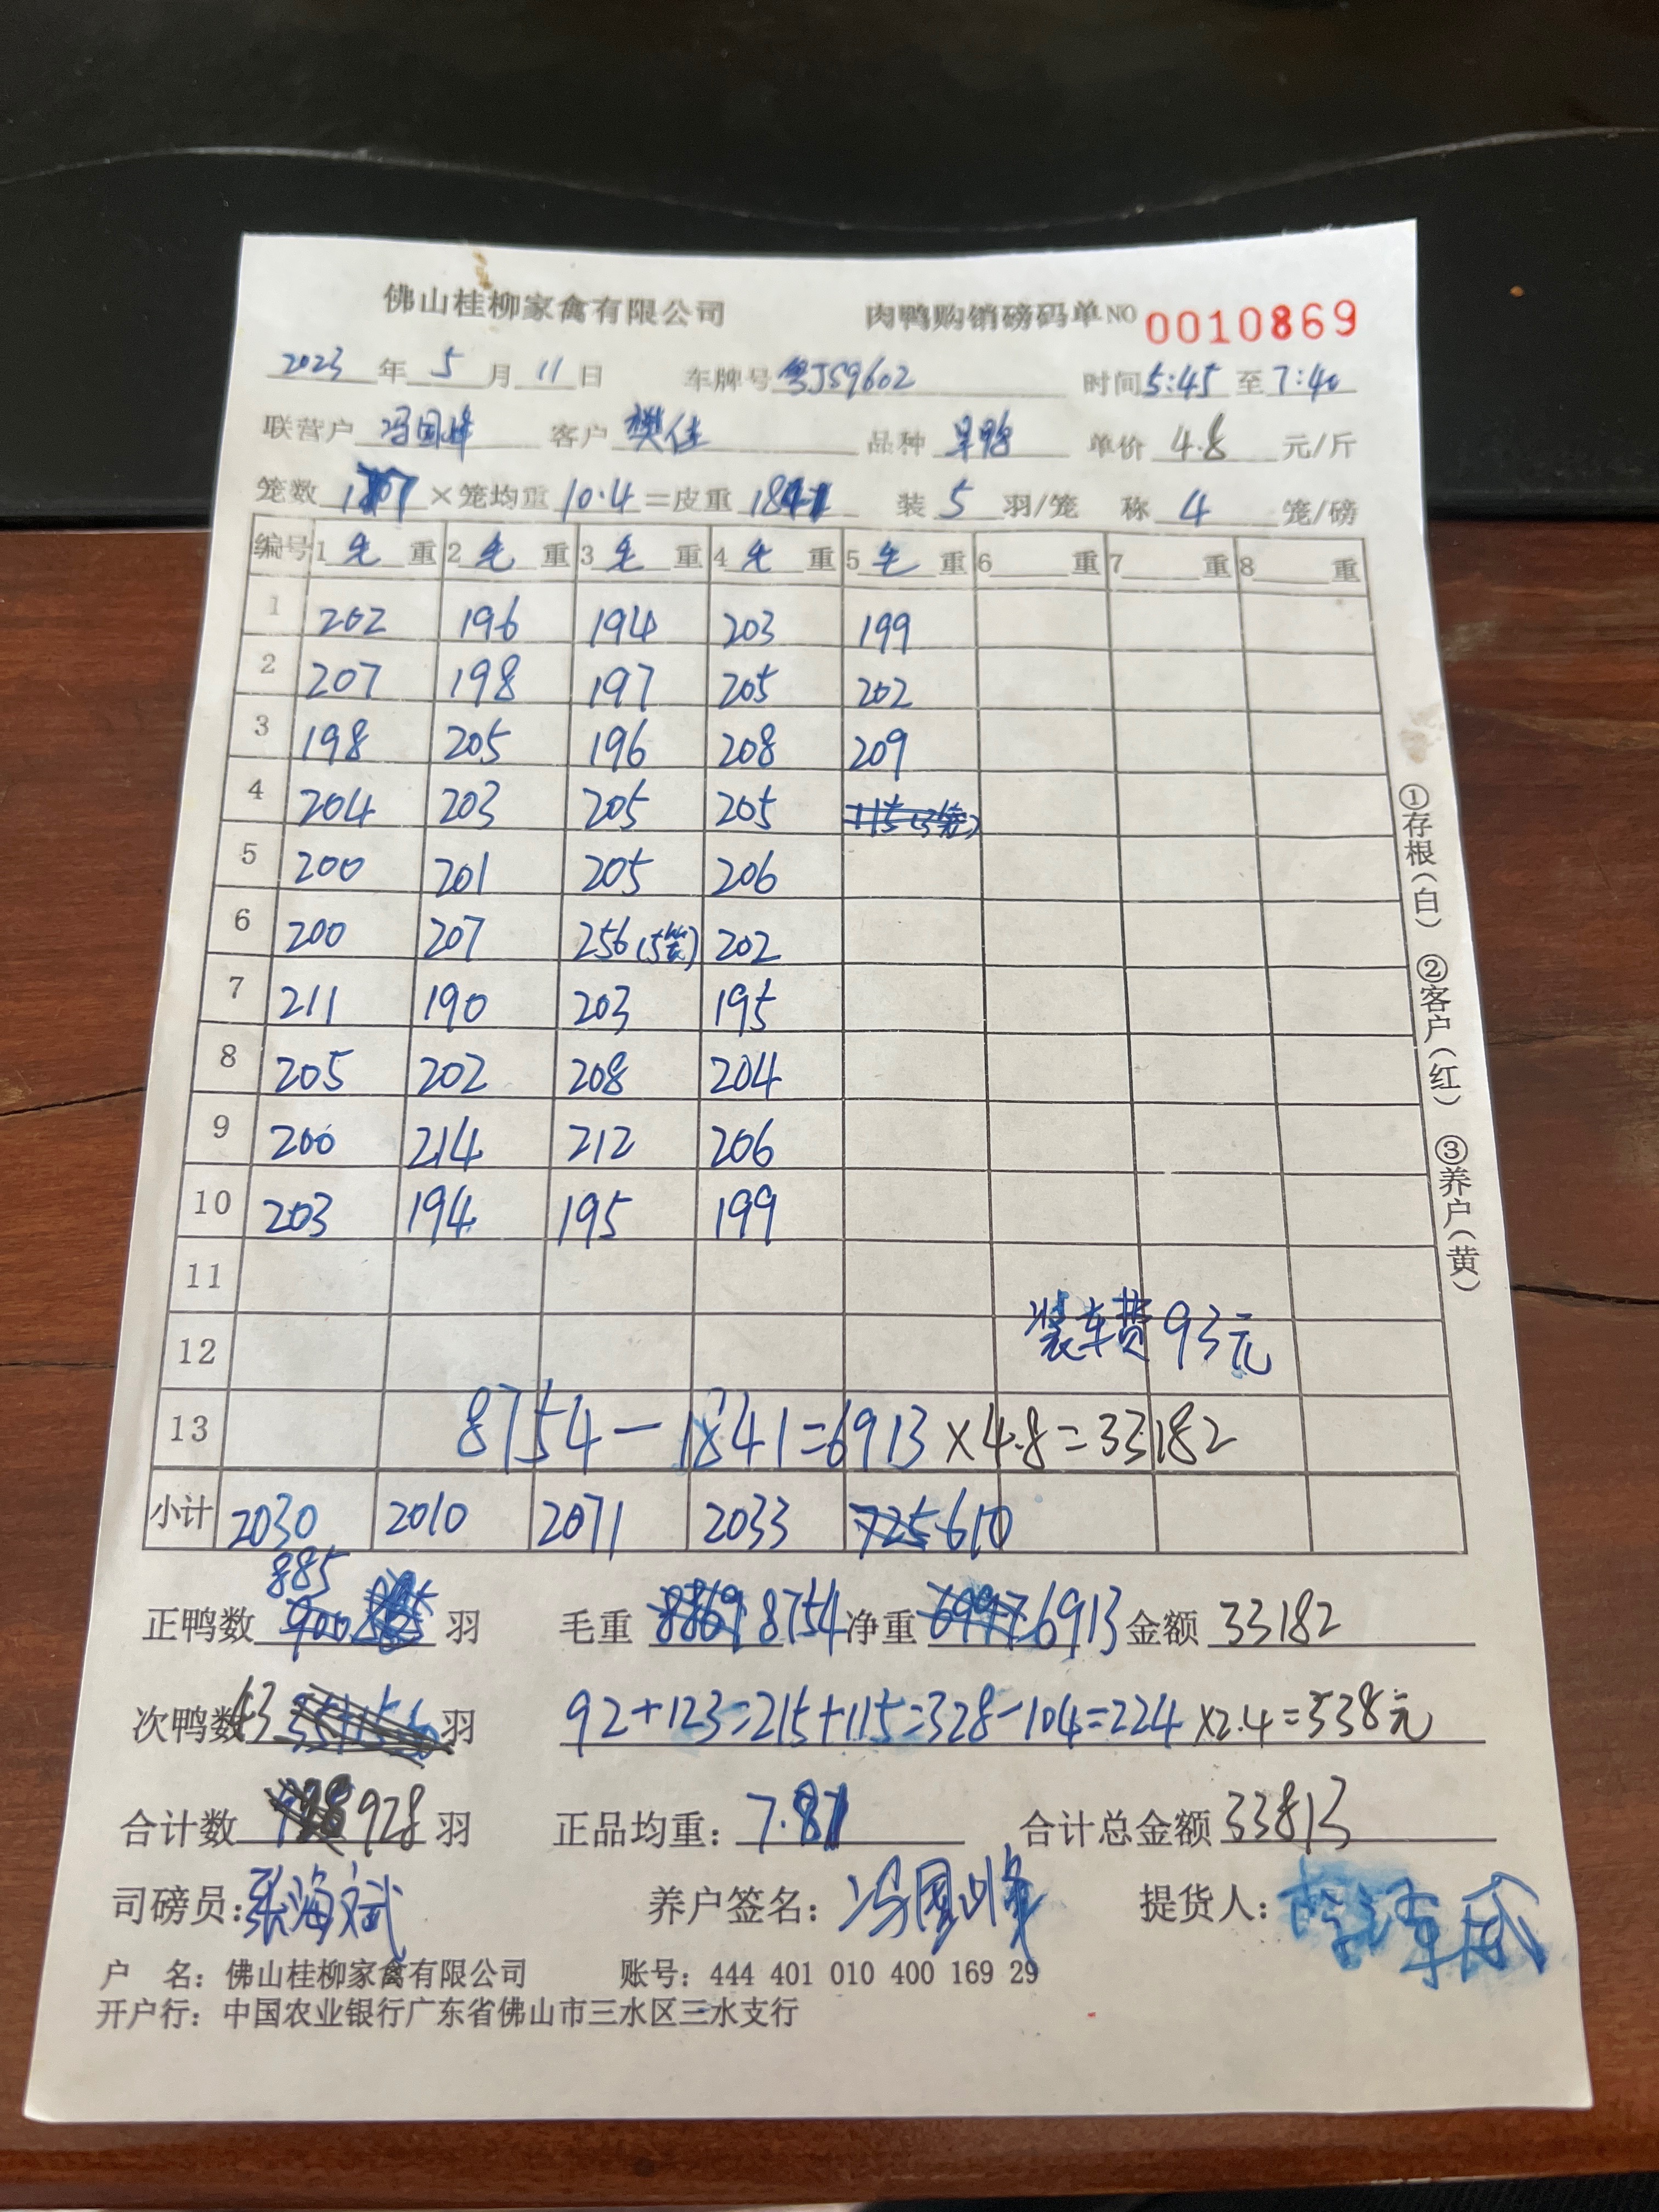 佛山桂柳家禽有限公司 肉鸭购销磅码单 NO 0010869
2023 年 5 月 11 日 车牌号 粤JS9602 时间 5:45 至 7:40
联营户 冯国峰 客户 樊佳 品种 旱鸭 单价 4.8 元/斤
笼数 177 ×笼均重 10.4 =皮重 1841 装 5 羽/笼 称 4 笼/磅
编号 1 毛 重 2 毛 重 3 毛 重 4 毛 重 5 毛 重 6 重 7 重 8 重
1 202 196 194 203 199
2 207 198 197 205 202
3 198 205 196 208 209
4 204 203 205 205 115(3笼)
5 200 201 205 206
6 200 207 256(5笼) 202
7 211 190 203 195
8 205 202 208 204
9 200 214 212 206
10 203 194 195 199
11
12 装车费 93元
13 8754-1841=6913×4.8=33182
小计 2030 2010 2071 2033 725 610
885
正鸭数 900 羽 毛重 8869 8754 净重 6997 6913 金额 33182
次鸭数 43 羽 92+123=215+115=328-104=224×2.4=538元
合计数 928 羽 正品均重: 7.81 合计总金额 33813
司磅员: 张海斌 养户签名: 冯国峰 提货人:
户 名: 佛山桂柳家禽有限公司 账号: 444 401 010 400 169 29
开户行: 中国农业银行广东省佛山市三水区三水支行
①存根(白) ②客户(红) ③养户(黄)